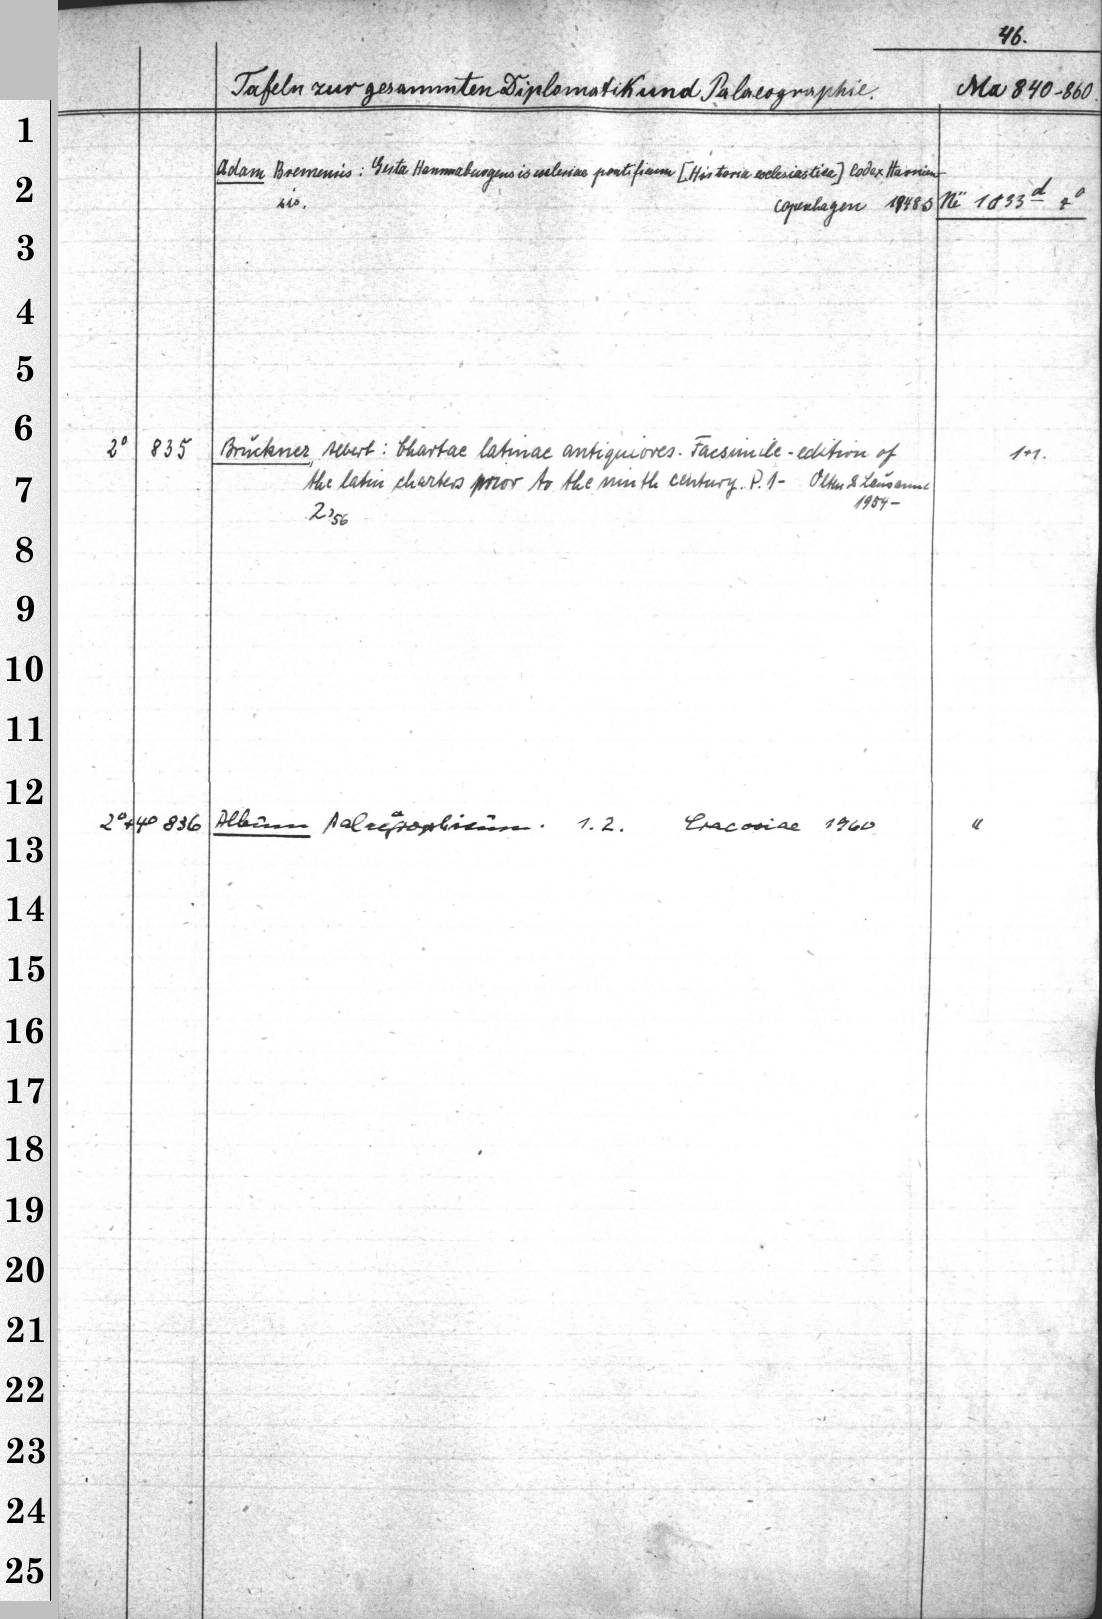 46.
Tafeln zur gesammten Diplomatik und Palaeographie. Ma 840-860.
1
Adam Bremensis: Gesta Hammaburgensis ecclesiae pontificum [Historia ecclesiastica] Codex Havnien-
2
sis. Copenhagen 1948 1833 d 4°
3
4
5
6
2° 835 Brückner, Albert: Chartae latinae antiquiores. Facsimile-edition of 1+1.
7
the latin charters prior to the ninth century. P. 1- Olten & Lausanne
1954-
2,56
8
9
10
11
12
2°+4° 836 Album Palaeographicum. 1.2. Cracoviae 1960 "
13
14
15
16
17
18
19
20
21
22
23
24
25